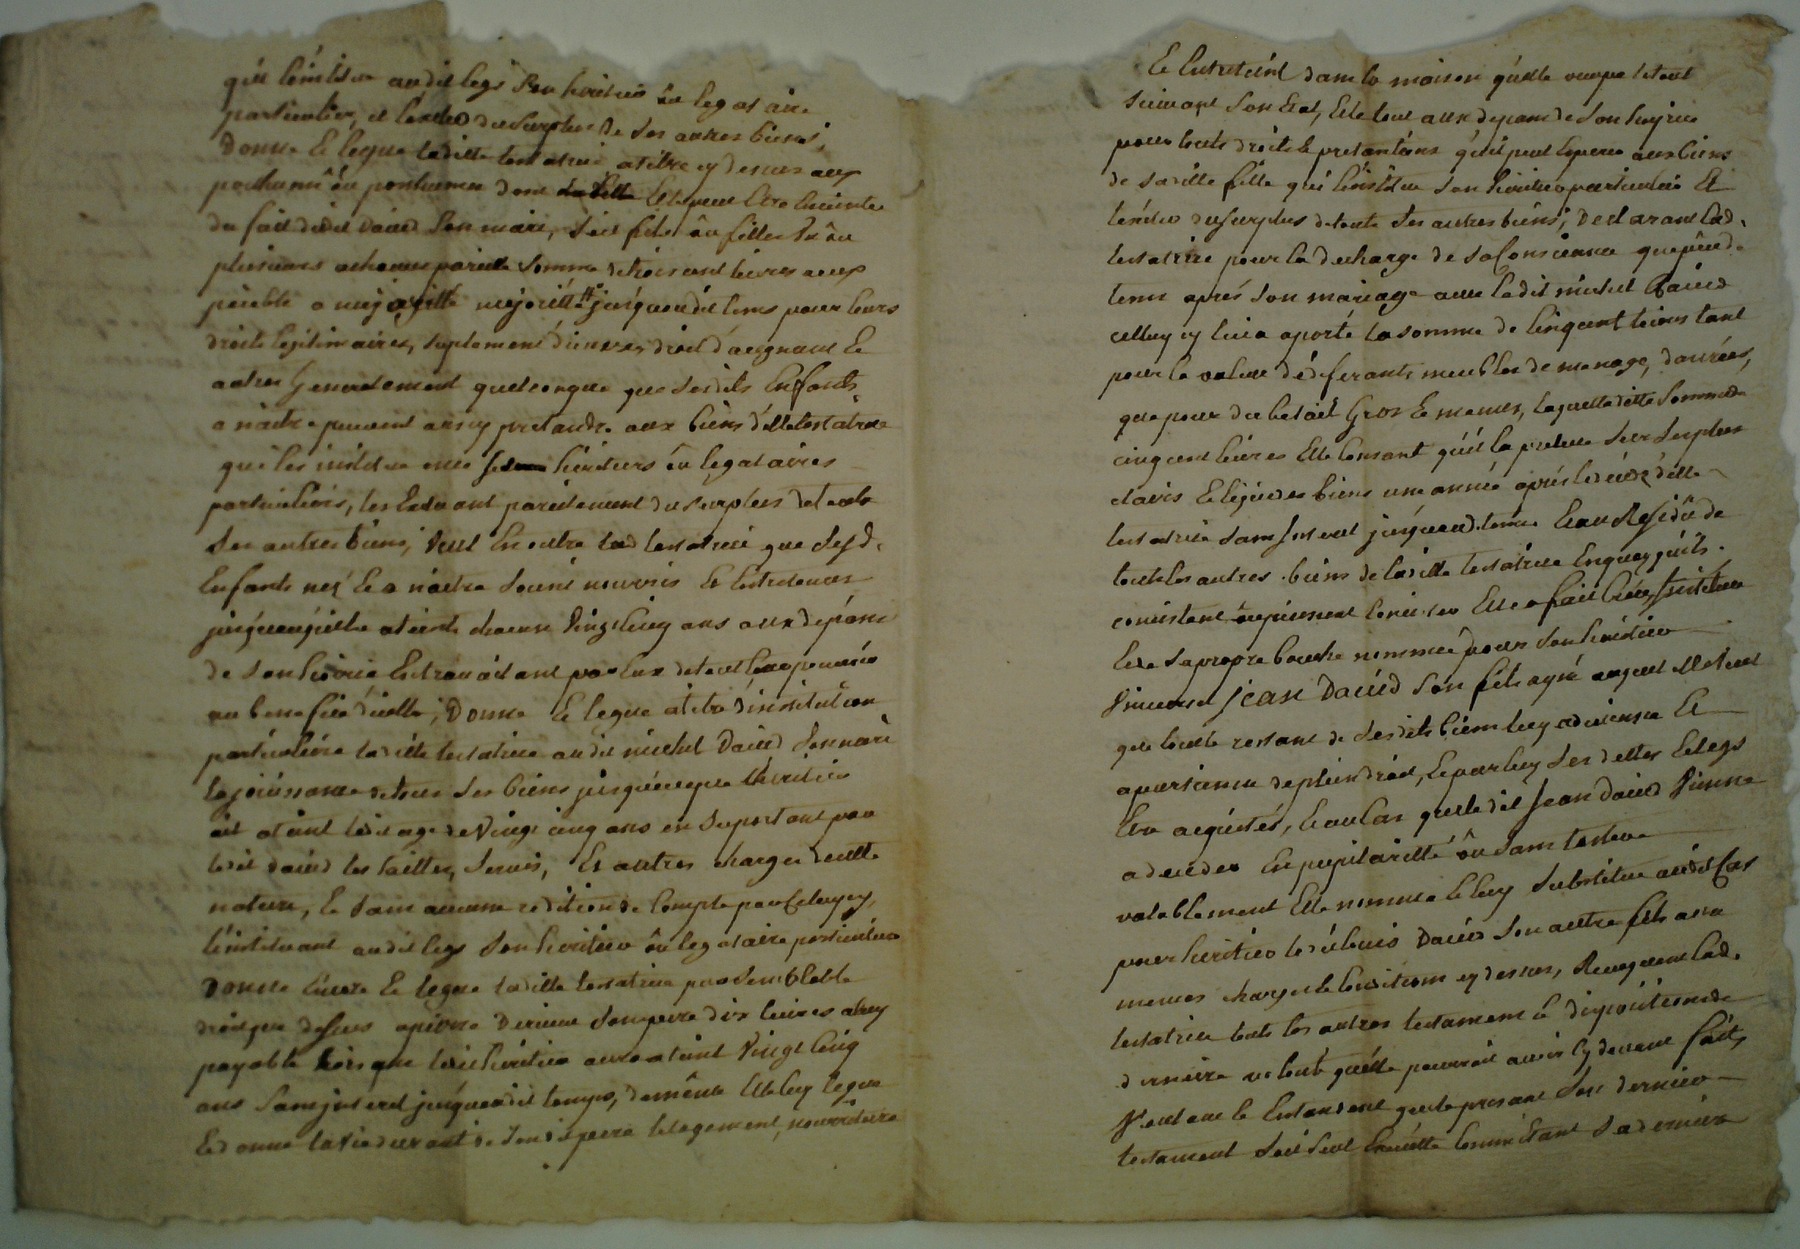 qui l'instituë audit legs Son heritier ôu legataire
particulier, et l'exclud du surplus de Ses autres biens;
Donne Et legue laditte testatrice atiltre cy dessus aux
posthumê ôu posthumes dont Elle peut Etre Enceinte
du fait dudit Daúd Son mari, Soit fils ôu filles Un ôu
plusieurs achacun pareille Somme detrois cent livres aussy
paiable a majorité jusqu'audit tems pour leurs
droits legitimaires, suplement d'iceux, droit d'augment Et
autres Generalement quelconque que Sesdits Enfants
a naitre peuvent avoir y pretandre aux biens d'elle testatrice
qui les instituë heritiers ôu legataires
particuliers, les Excluant pareillement du surplus de touts
Ses autres biens, Veut En outre lad testatrice que Sesd.
Enfants nés Et a naitre Soient nourris Et Entretenus
jusqu'aquils atient chacun Vingtcinq ans aux depans
de Son hoirie Entravaillant par Eux de tout leur pouvoir
au benefice d'icelle; Donne Et legue atitre d'institution
particuliere laditte testatrice audit michel Daúd Son mari
la joüissance de tous Ses biens jusqu'aceque lheritier
ait atient ledit age de Vingt cinq ans en Suportant par
ledit daúd les tailles, Servis, Et autres charges de cette
nature, Et Sans aucune redition de Compte par Celuy cy,
l'instituant audit legs Son heritier ôu legataire particulier
Donne Encore Et legue laditte testatrice par Semblable
droit que dessus apierre Son pere dix livres aluy
payable lors que ledit heritier aura atient Vingt Cinq
ans Sans interet jusqu'audit temps, demême Elle luy legue
Et donne la Vie durant de Sondit pere le logement, nourriture
Et Entretient dans la maison qu'elle occupe le tout
Suivant Son Etat, Et le tout aux depans de Son hoyrie
pour touts droits Et pretantions qu'il peut Esperer aux biens
de Saditte fille qui l'instituë Son heritier particulier Et
l'exclud du surplus de touts Ses autres biens; Declarant lad.
testatrice pour la decharge de Sa Consience que peu de
tems aprés Son mariage avec ledit michel Daúd
celluy cy luia aporté la somme de Cinqcent livres tant
pour la valeur de diferants meubles de menage, danrées,
que pour du betail Gros Et menus, laquelle ditte Somme de
cinq cent livres Elle Consant qu'il la preleve Sur Ses plus
clairs Et liquides biens une année aprés le decéds d'elle
testatrice Sans Interet jusqu'aud. terme Et au Residü de
touts les autres biens de laditte testatrice Enquoy quils
consistent Elle a fait Crée, Instituë
Et de Sapropre bouche nommée pour Son heritier
Universel Jean Daúd Son fils ayné auquel Elle Veut
que le restant de Sesdits biens luy advienne Et
apartienne de plein droit, Et par luy Ses dettes Et legs
Etre acquittés, Et au Cas que ledit Jean Daúd Vienne
a deceder En pupilarité ôu Sans tester
valablement Elle nomme Et luy Substitue audit Cas
pour heritier ledit Daúd Son autre fils aux
memes charges Et Conditions cy dessus, Revoquant lad.
testatrice touts les autres testamens Et dispositions de
derniere volonté qu'elle pourrait avoir cy devant faits
Voulant Et Entandent que le presant Son dernier
testament Soit Seul Executté Comme Etant Sa derniere